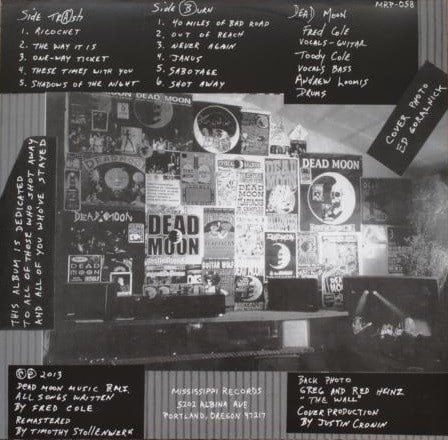 Side TRⒶSH
1. RICOCHET
2. THE WAY IT IS
3. ONE-WAY TICKET
4. THESE TIMES WITH YOU
5. SHADOWS OF THE NIGHT
Side ⒷURN
1. 40 MILES OF BAD ROAD
2. OUT OF REACH
3. NEVER AGAIN
4. JANUS
5. SABOTAGE
6. SHOT AWAY
DEAD MOON
FRED COLE
VOCALS-GUITAR
TOODY COLE
VOCALS BASS
ANDREW LOOMIS
DRUMS
MRP-058
COVER PHOTO
ED GORALNICK
THIS ALBUM IS DEDICATED
TO ALL OF THOSE WHO SHOT AWAY
AND ALL OF YOU WHO'VE STAYED
DEAD MOON
DEAD MOON
DEAD MOON
DEAD
MOON
DEAD MOON
DEAD
MOON
©℗ 2013
DEAD MOON MUSIC BMI.
ALL SONGS WRITTEN
BY FRED COLE
REMASTERED
BY TIMOTHY STOLLENWERK
MISSISSIPPI RECORDS
5202 ALBINA AVE.
PORTLAND, OREGON 97217
BACK PHOTO
GREG AND RED HEINZ
"THE WALL"
COVER PRODUCTION
BY JUSTIN CRONIN